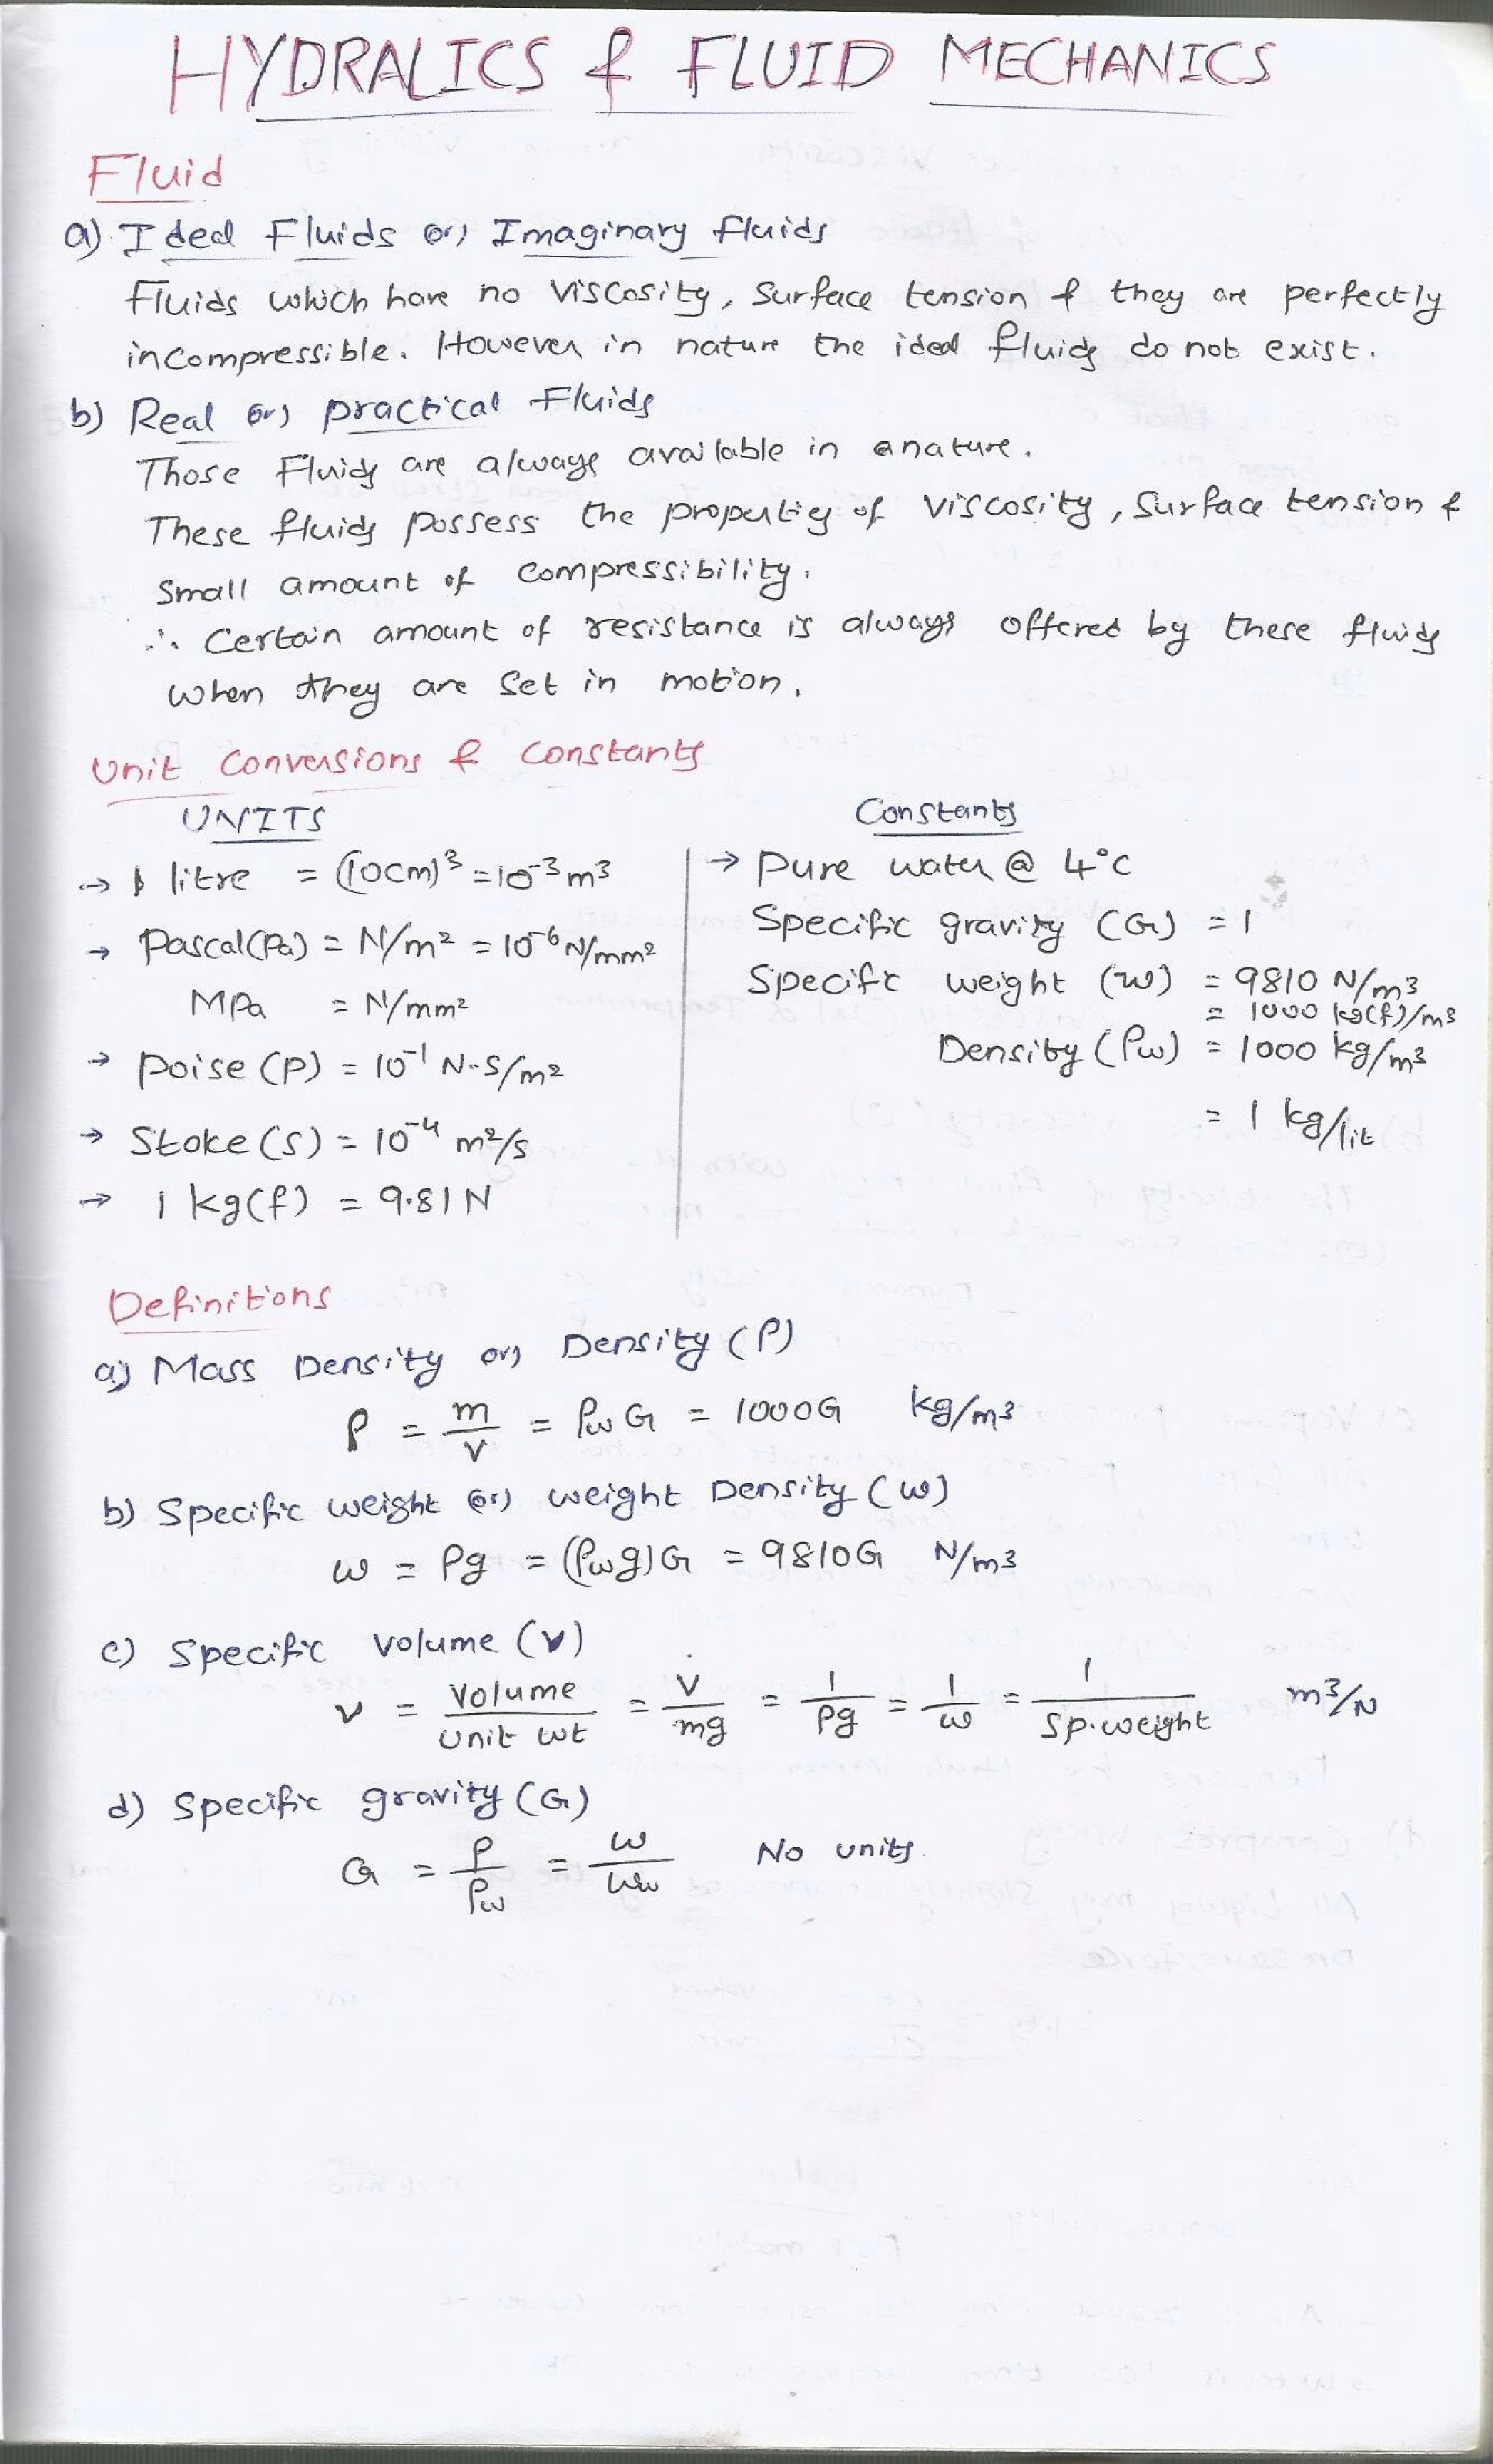 HYDRALICS & FLUID MECHANICS
Fluid
a) Ideal Fluids (or) Imaginary fluids
Fluids which have no viscosity, surface tension & they are perfectly
incompressible. However in nature the ideal fluids do not exist.
b) Real (or) practical Fluids
Those Fluids are always available in a nature.
These fluids possess the properties of viscosity, surface tension &
small amount of compressibility.
∴ Certain amount of resistance is always offered by these fluids
when they are set in motion.
Unit Conversions & Constants
UNITS
→ 1 litre = (10cm)³ = 10⁻³ m³
→ Pascal(Pa) = N/m² = 10⁻⁶ N/mm²
MPa = N/mm²
→ Poise (P) = 10⁻¹ N-S/m²
→ Stoke (S) = 10⁻⁴ m²/s
→ 1 kg(f) = 9.81 N
Constants
→ Pure water @ 4°C
Specific gravity (G) = 1
Specific weight (w) = 9810 N/m³
= 1000 kg(f)/m³
Density (ρw) = 1000 kg/m³
= 1 kg/lit
Definitions
a) Mass Density (or) Density (ρ)
ρ = m/v = ρw G = 1000G kg/m³
b) Specific weight (or) weight Density (w)
w = ρg = (ρw g) G = 9810G N/m³
c) Specific volume (v)
v = Volume/Unit wt = V/mg = 1/ρg = 1/w = 1/sp.weight m³/N
d) Specific gravity (G)
G = ρ/ρw = w/ww No units